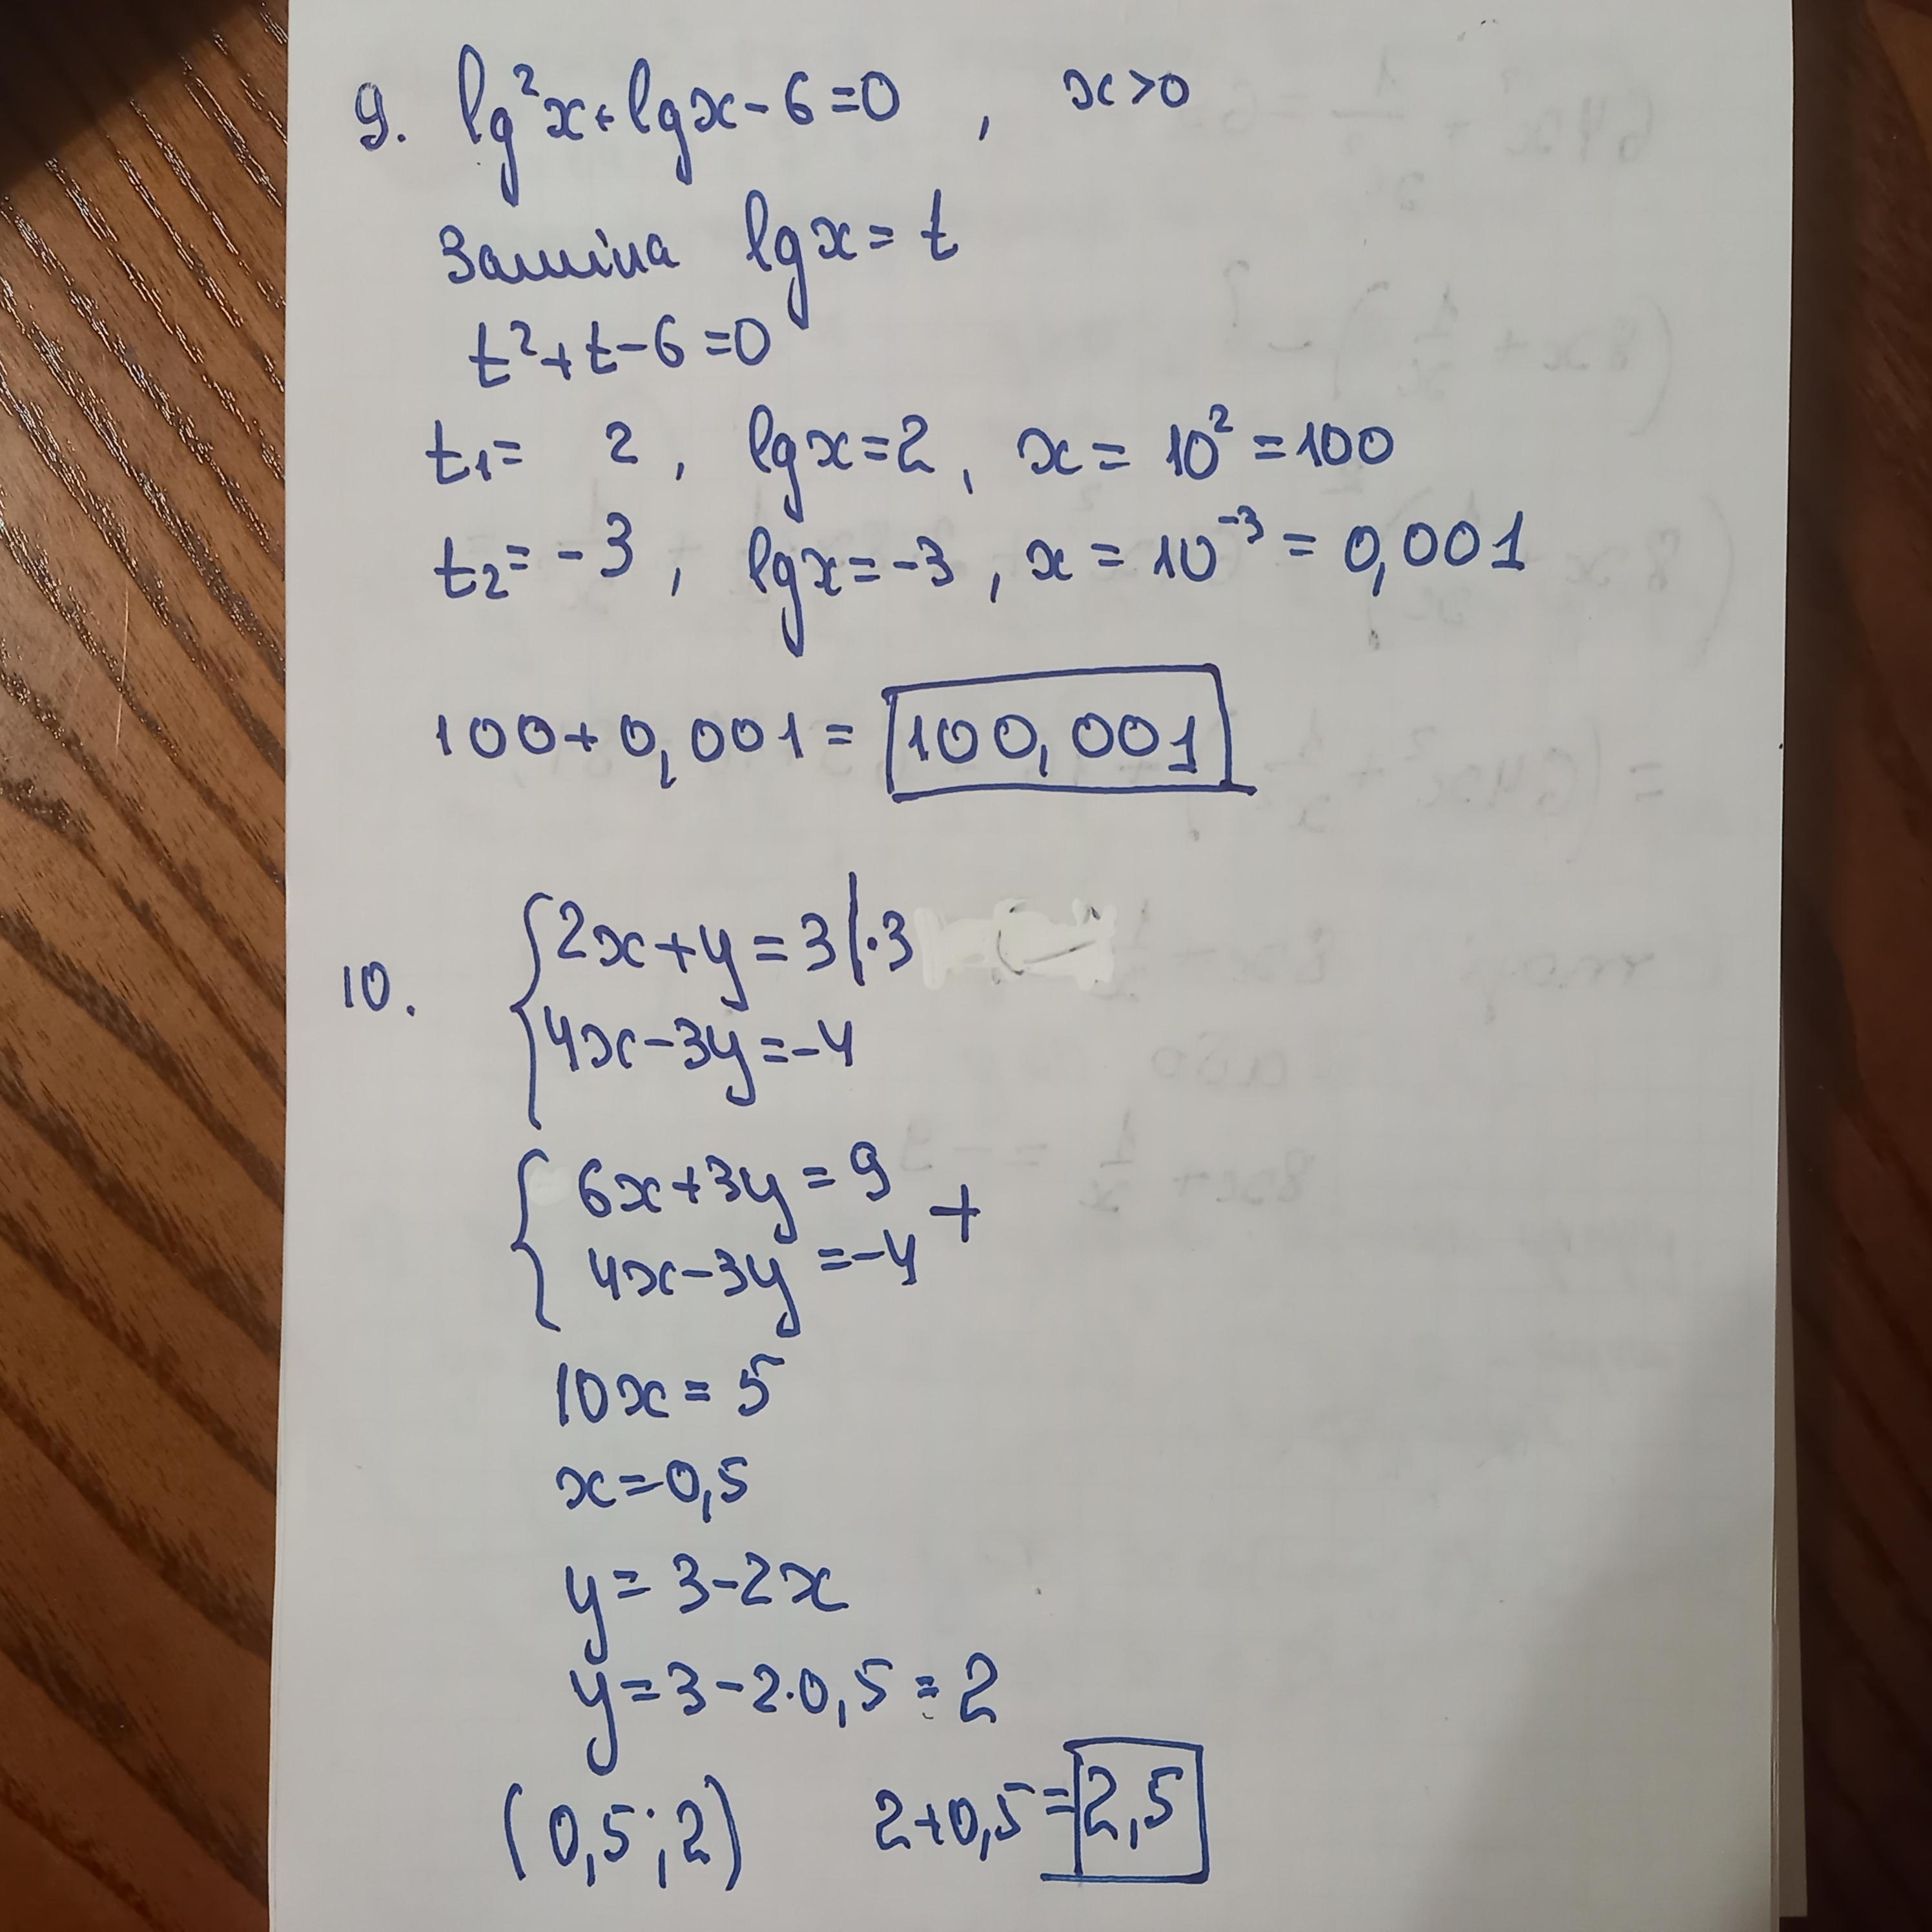 9. lg²x+lgx-6=0, x>0
Заміна lgx=t
t²+t-6=0
t₁= 2, lgx=2, x=10²=100
t₂=-3, lgx=-3, x=10⁻³=0,001
100+0,001=100,001
10. {2x+y=3|·3
4x-3y=-4
{6x+3y=9 +
4x-3y=-4
10x=5
x=0,5
y=3-2x
y=3-2·0,5=2
(0,5;2) 2+0,5=2,5